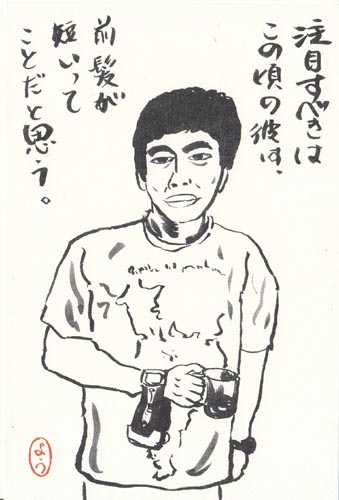 注目すべきは
この頃の彼は、
前髪が
短いって
ことだと思う。
よう